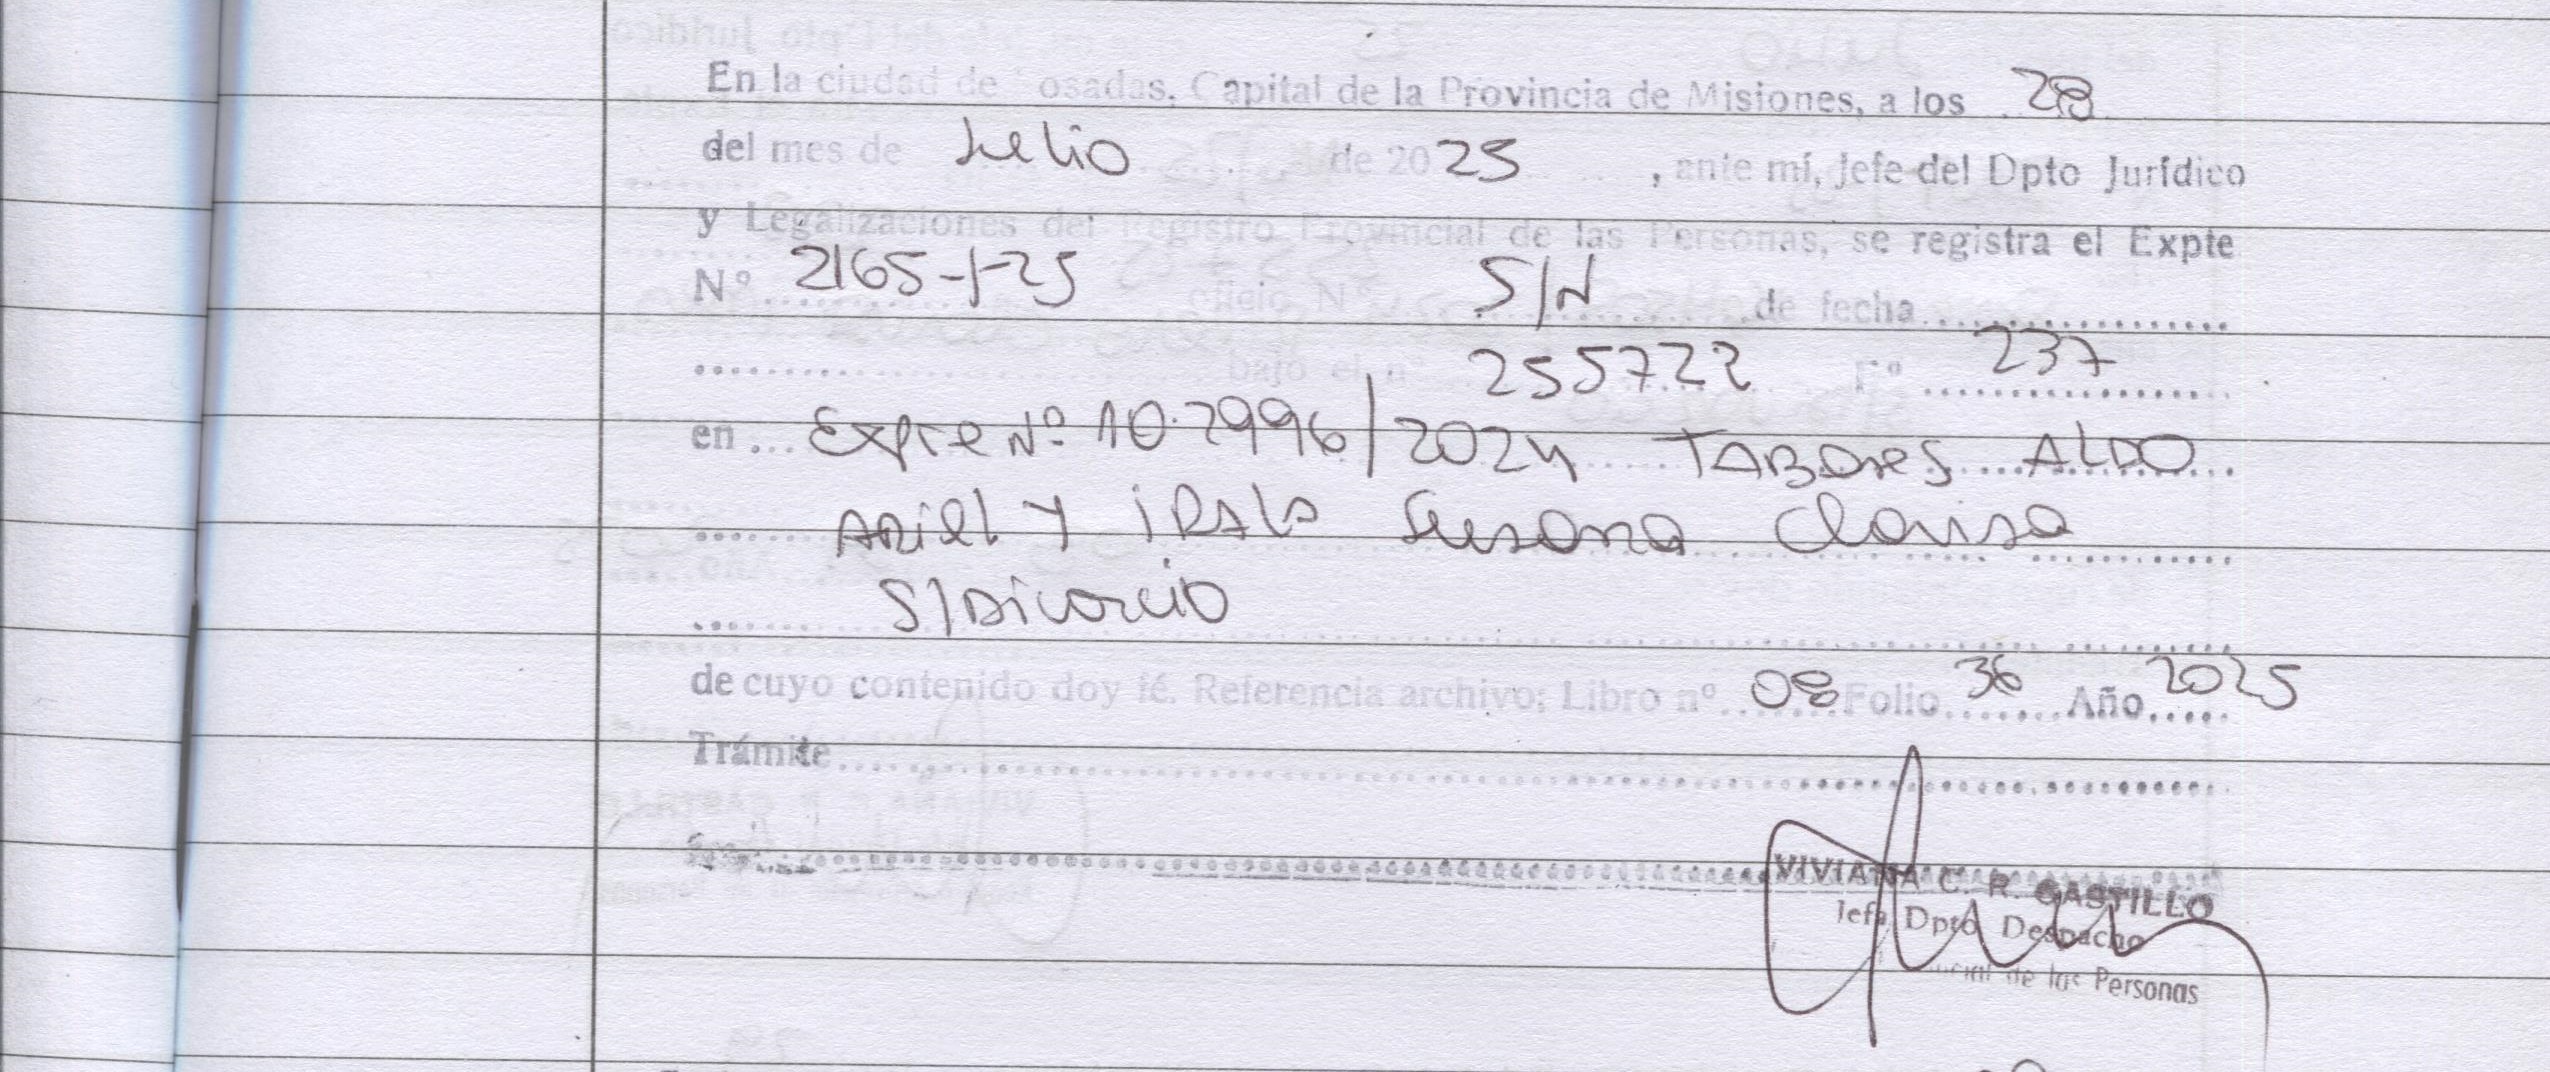 En la ciudad de Posadas, Capital de la Provincia de Misiones, a los 28
del mes de Julio de 2025, ante mí, Jefe del Dpto Jurídico
y Legalizaciones del Registro Provincial de las Personas, se registra el Expte
Nº 2165-I-25 oficio Nº S/N de fecha
bajo el nº 255722 Fº 237
en Expte Nº 102996/2024 TABORES ALDO
ARIEL Y IRALA Susana Clarisa
S/Divorcio
de cuyo contenido doy fé. Referencia archivo; Libro nº 08 Folio 36 Año 2025
Trámite
VIVIANA C. R. CASTILLO
Jefa Dpto Despacho
de las Personas